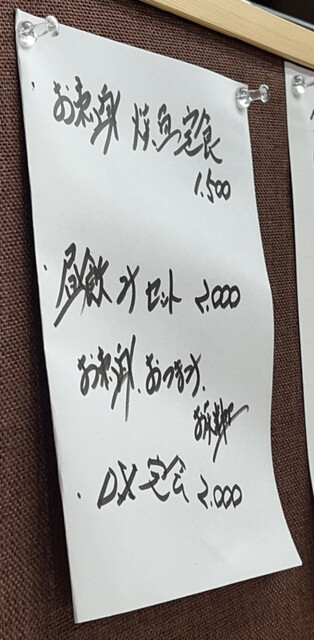 ・お刺身 焼魚定食
1.500
・昼飲みセット 2.000
お刺身、おつまみ、
お飲物
・DX定食 2.000